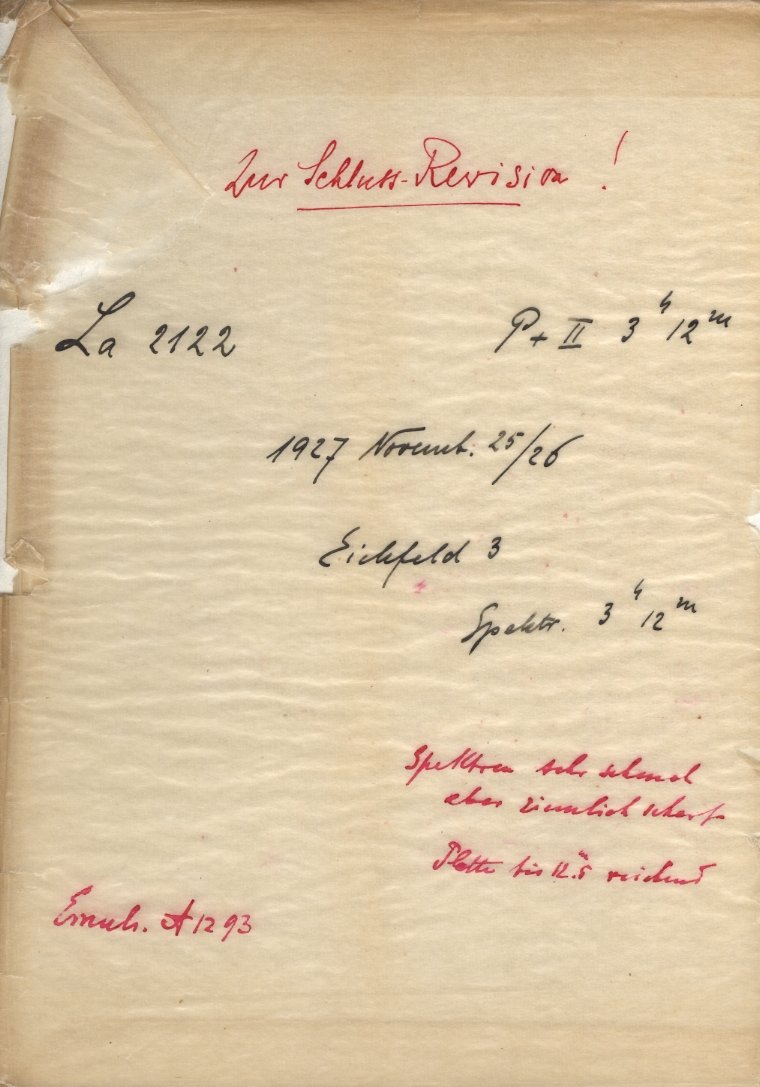 Zur Schluss-Revision!
La 2122 P + II 3h 12m
1927 Novemb. 25/26
Eichfeld 3
Spektr. 3h 12m
Spektren sehr schmal
aber ziemlich scharf
Platte bis 12.m5 reichend
A 1293